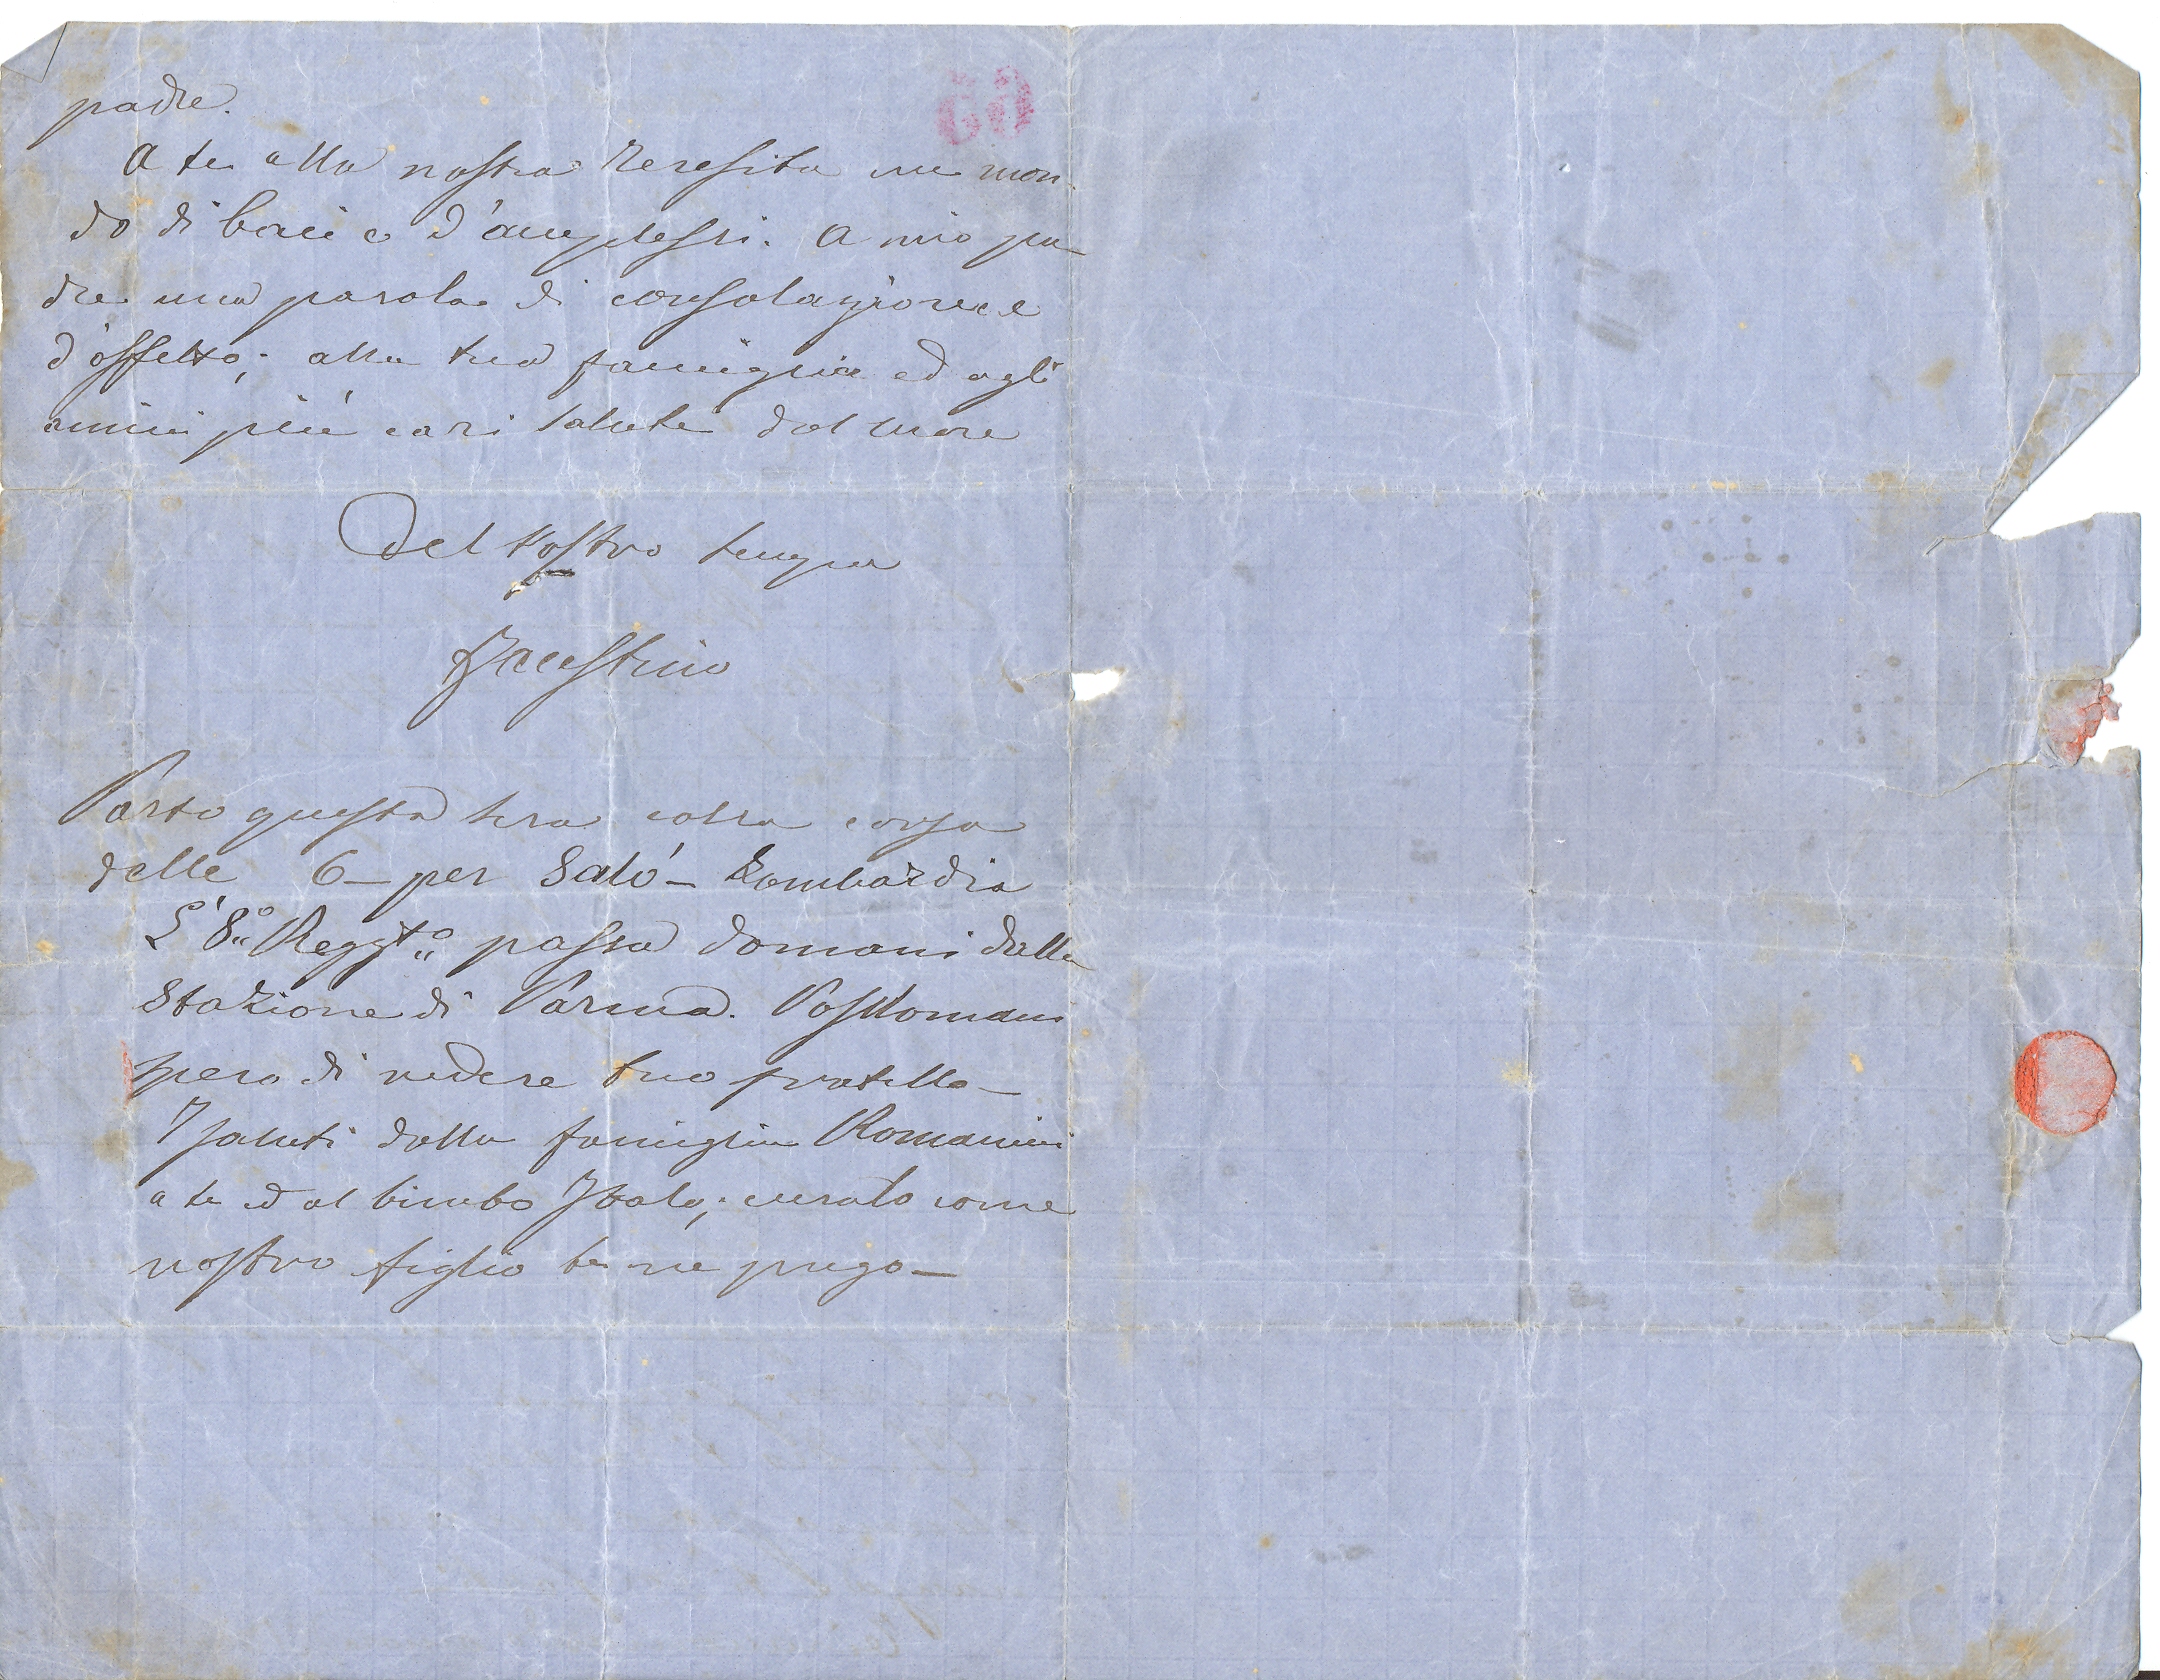 padre.
A te alla nostra Teresita un mon-
do di baci e d'amplessi. A mio pa
dre una parola di consolazione e
d'affetto; alla tua famiglia ed agli
amici più cari salute dal cuore
Del vostro sempre
Faustino
Parto questa sera colla corsa
delle 6 – per Salò – Lombardia
L'8º Reggto passa domani dalla
Stazione di Parma. Posdomani
spero di vedere tuo fratello –
I saluti dalla famiglia Romanini
a te ed al bimbo Italo; curalo come
nostro figlio te ne prego –